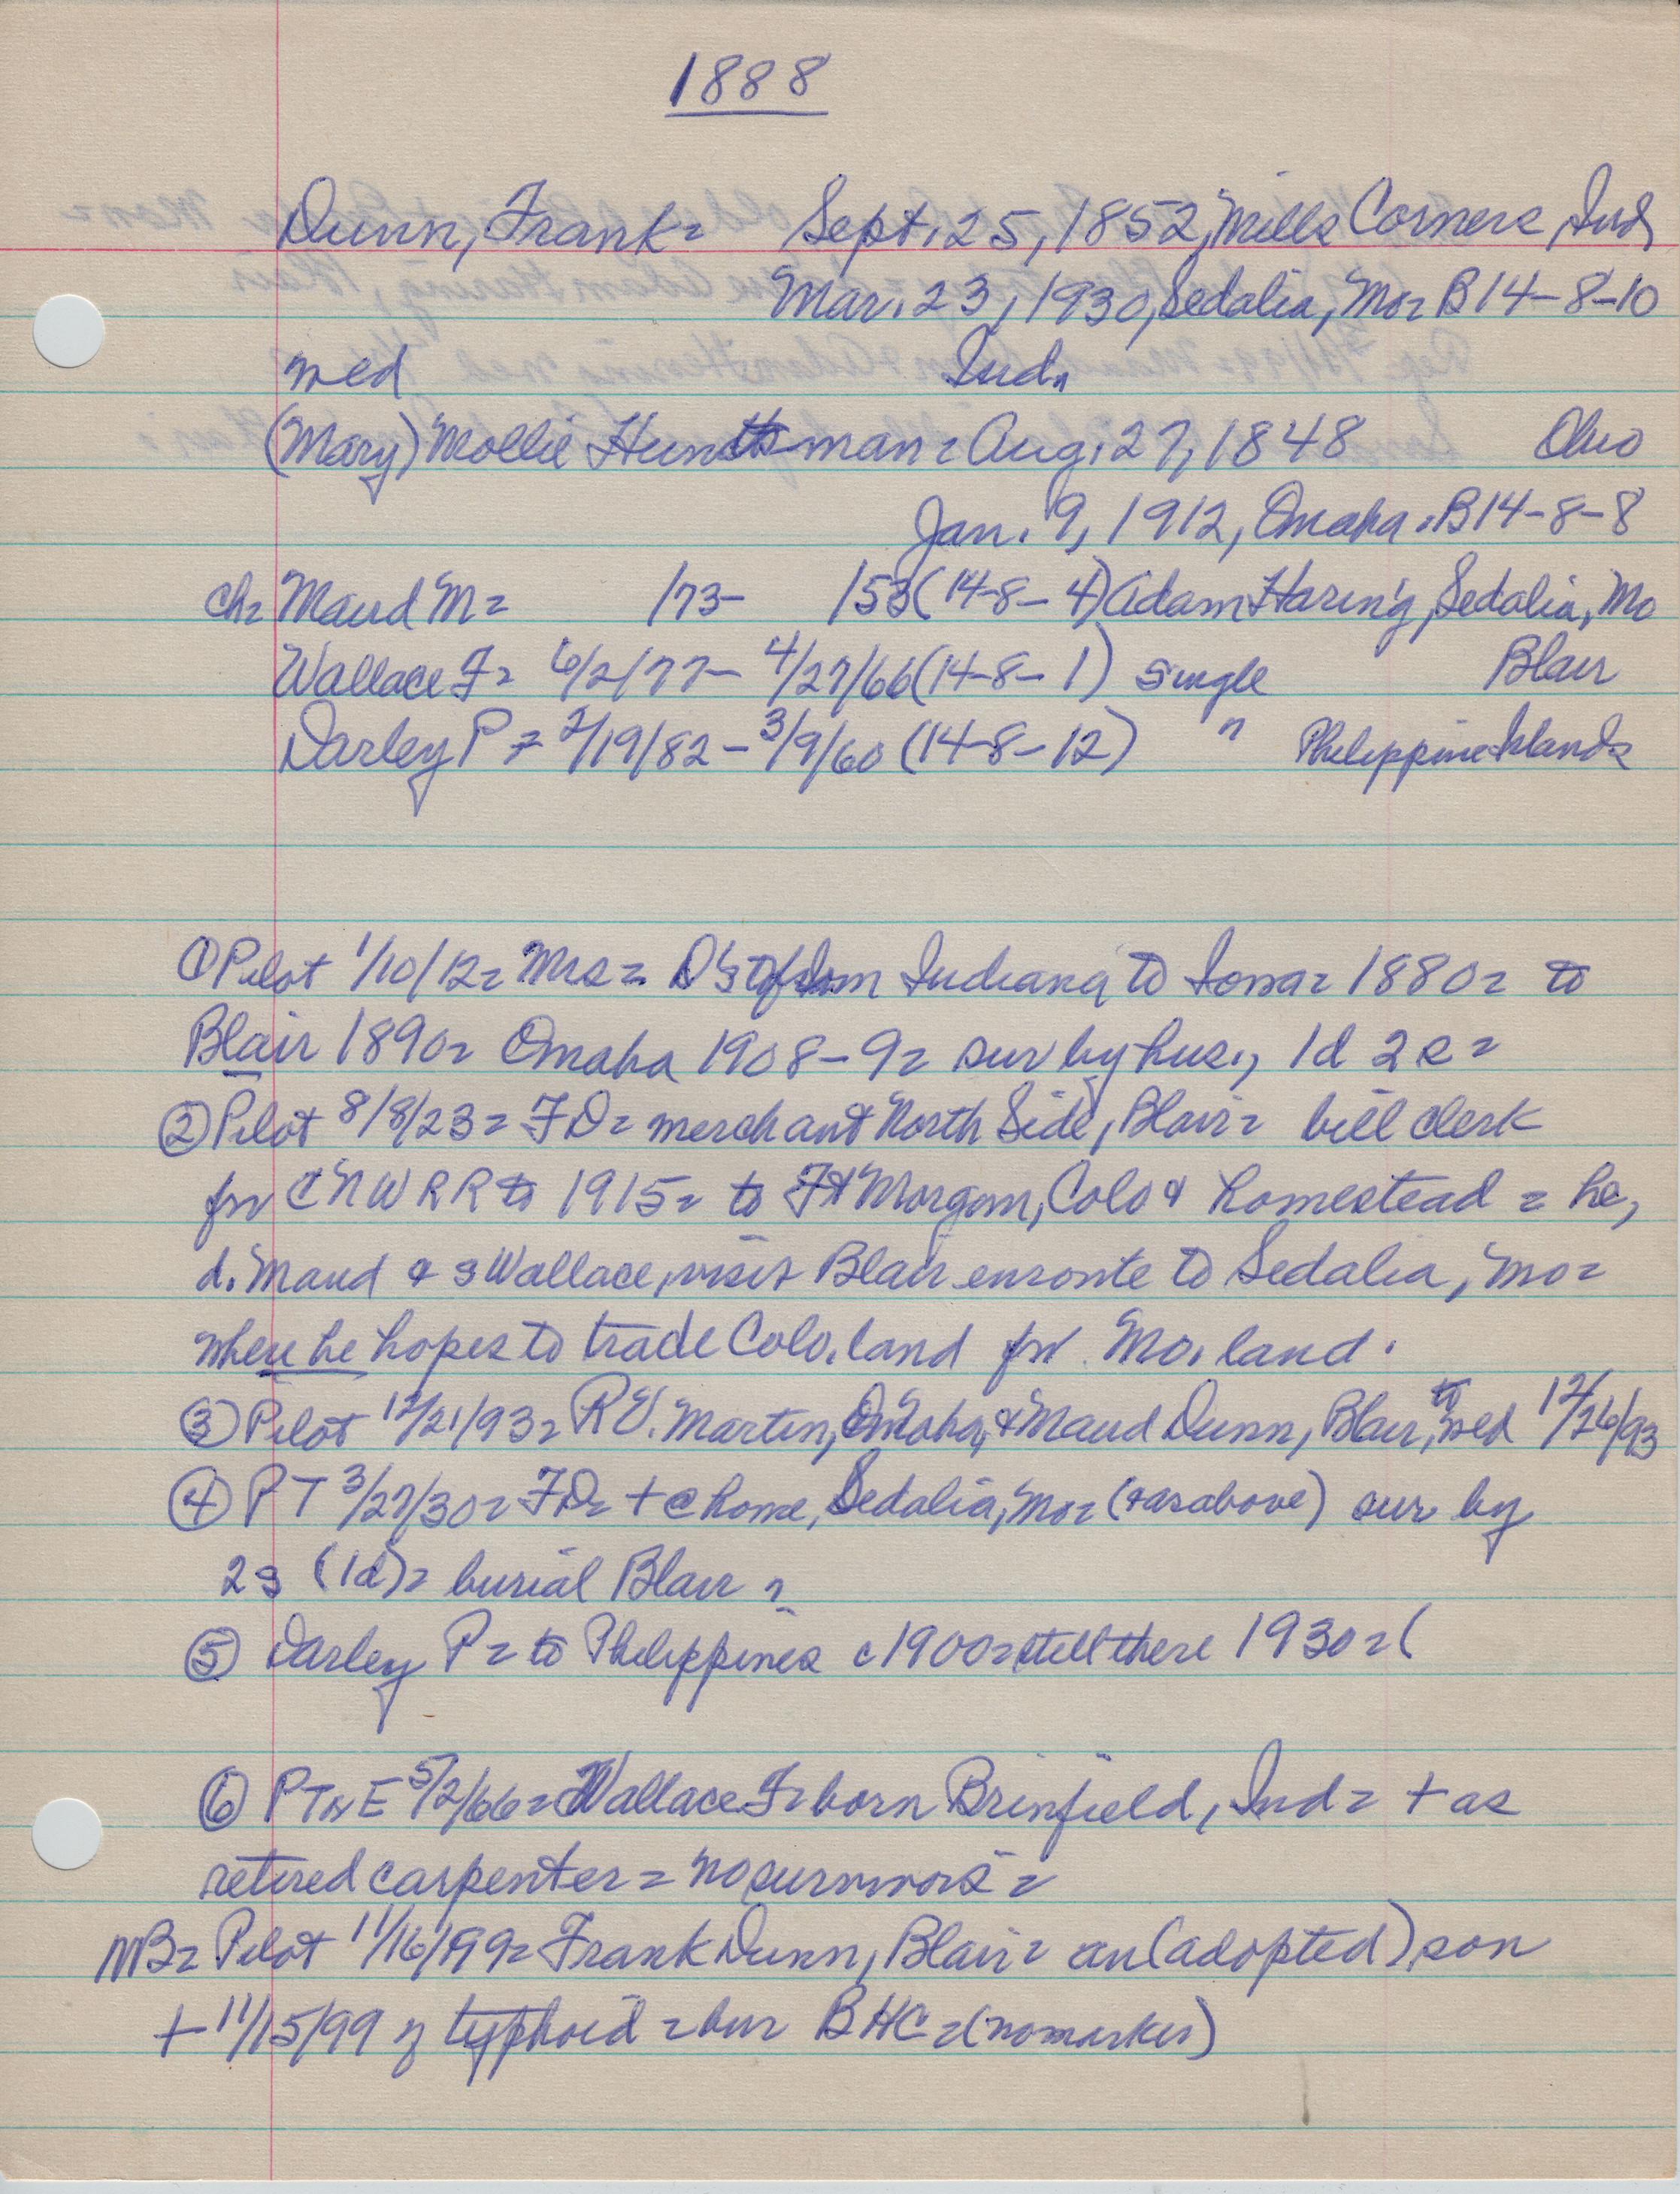 1888
Dunn, Frank = Sept. 25, 1852, Mills Corners, Ind
Mar. 23, 1930, Sedalia, Mo = B 14-8-10
med Ind.
(Mary) Mollie Huntsman = Aug. 27, 1848 Ohio
Jan. 9, 1912, Omaha. B14-8-8
ch = Maud M = /73- /53 (14-8-4) Adam Haring, Sedalia, Mo
Wallace F = 6/2/77- 4/27/66 (14-8-1) single Blair
Darley P = 2/19/82 - 3/9/60 (14-8-12) " Philippine Islands
① Pilot 1/10/12 = Mrs = D's Indiana to Iowa = 1880 = to
Blair 1890 = Omaha 1908-9 = sur by hus., 1d 2s =
② Pilot 8/8/23 = FD = merchant North Side, Blair = bill clerk
for CNWRR to 1915 = to Ft Morgan, Colo & homestead = he,
d. Maud & s Wallace, visit Blair enroute to Sedalia, Mo =
where he hopes to trade Colo. land for Mo. land.
③ Pilot 12/21/93 = R E. Martin, Omaha, & Maud Dunn, Blair, to wed 12/26/93
④ PT 3/27/30 = FD = + @ home, Sedalia, Mo = (+ as above) sur by
2s (1d) = burial Blair =
⑤ Darley P = to Philippines c 1900 = still there 1930 = (
⑥ PT&E 5/2/66 = Wallace F = born Brinfield, Ind = + as
retired carpenter = no survivors =
NB = Pilot 11/16/99 = Frank Dunn, Blair = an (adopted) son
+ 11/15/99 of typhoid = bur BHC = (no marker)